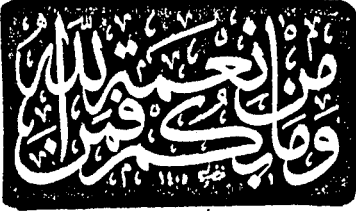 وَمَا بِكُم مِّن نِّعْمَةٍ فَمِنَ اللَّهِ
١٤٠٥